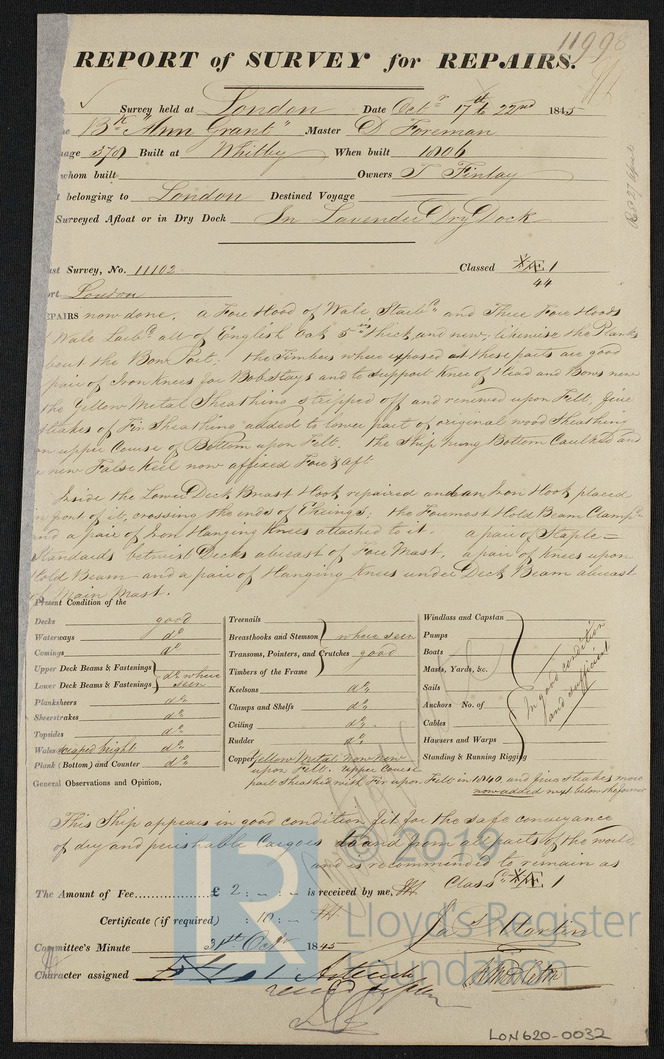 11998
REPORT of SURVEY for REPAIRS.
Survey held at London Date Octr 17th to 22nd 1845
Bk "Ann Grant" Master D Foreman
nage 378 Built at Whitby When built 1806
whom built Owners T Finlay
t belonging to London Destined Voyage
Surveyed Afloat or in Dry Dock In Lavender Dry Dock
ast Survey, No. 11102 Classed Æ 1
ort London 44
EPAIRS now done. a Fore Hood of Wale Starbd and Three Fore Hoods
Wale Larbd all of English Oak 5 ins thick and new; likewise the Planks
bout the Bow Port. the Timbers where exposed at these parts are good
pair of Iron Knees for Bobstays and to support Knee of Head and Bows new
the Yellow Metal Sheathing stripped off and renewed upon Felt, five
strakes of Fir Sheathing added to lower part of original wood Sheathing
on upper Course of Bottom upon Felt. the Ship hung Bottom Caulked and
new False Keel now affixed Fore & aft
Inside the Lower Deck Breast Hook repaired and an Iron Hook placed
in front of it, crossing the ends of Ekeings; the Foremost Hold Beam Clampd
and a pair of Iron Hanging Knees attached to it. a pair of Staple=
Standards betwixt Decks abreast of Fore Mast. a pair of Knees upon
Hold Beam and a pair of Hanging Knees under Deck Beam abreast
Main Mast.
Present Condition of the
Decks good
Waterways do
Comings do
Upper Deck Beams & Fastenings
Lower Deck Beams & Fastenings do where seen
Planksheers do
Sheerstrakes do
Topsides do
Wales scraped bright do
Plank (Bottom) and Counter do
Treenails
Breasthooks and Stemson where seen
Transoms, Pointers, and Crutches good
Timbers of the Frame
Keelsons do
Clamps and Shelfs do
Ceiling do
Rudder do
Copper Yellow Metal now new
upon Felt. upper Course
part Sheathed with Fir upon Felt in 1840, and five strakes more
now added next below the former
Windlass and Capstan
Pumps
Boats
Masts, Yards, &c.
Sails
Anchors No. of
Cables
Hawsers and Warps
Standing & Running Rigging
In good condition
and sufficient
General Observations and Opinion,
This Ship appears in good condition fit for the safe conveyance
of dry and perishable Cargoes to and from all parts of the world,
and is recommended to remain as
Classd Æ 1
The Amount of Fee £ 2 : - : - is received by me,
Certificate (if required) : 10 : -
Committee's Minute 31st Octr 1845
Character assigned
© 2019
Lloyd's Register
Foundation
LR
LON620-0032